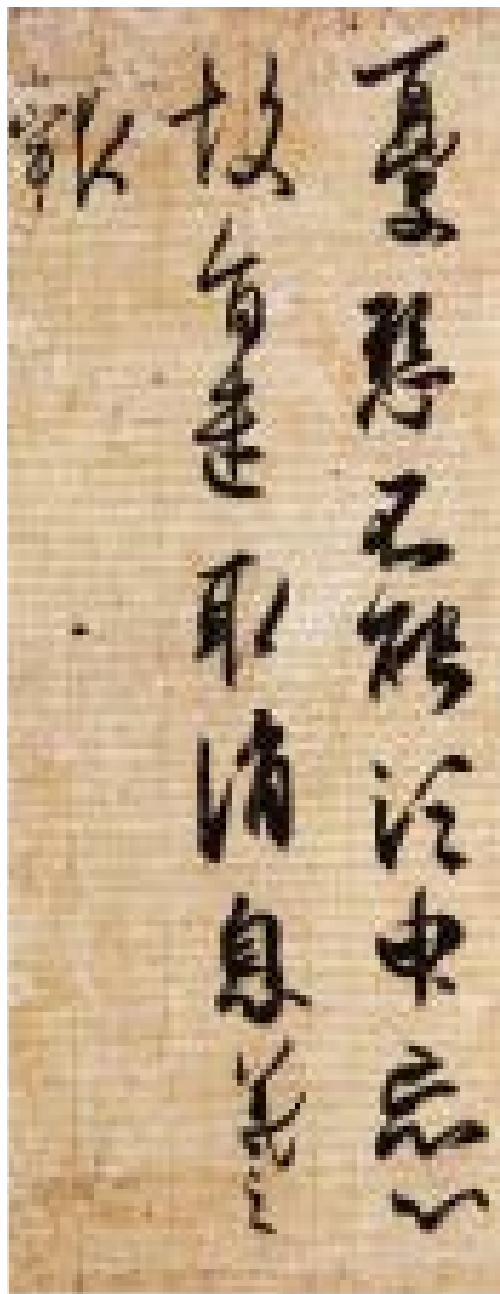 憂懸不能須臾忘心
故旨遣取消息羲之
報